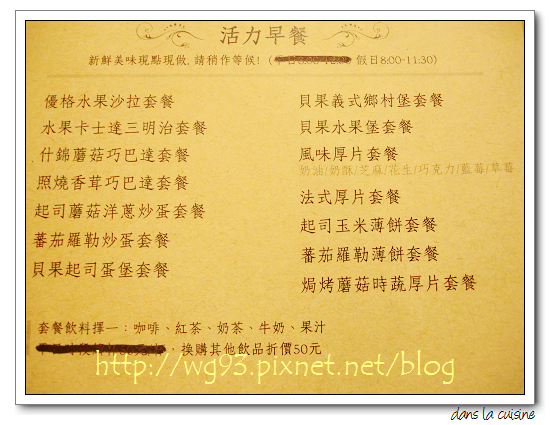 活力早餐
新鮮美味現點現做, 請稍作等候! ( 假日8:00-11:30)
優格水果沙拉套餐
水果卡士達三明治套餐
什錦蘑菇巧巴達套餐
照燒香茸巧巴達套餐
起司蘑菇洋蔥炒蛋套餐
蕃茄羅勒炒蛋套餐
貝果起司蛋堡套餐
貝果義式鄉村堡套餐
貝果水果堡套餐
風味厚片套餐
奶油/奶酥/芝麻/花生/巧克力/藍莓/草莓
法式厚片套餐
起司玉米薄餅套餐
蕃茄羅勒薄餅套餐
焗烤蘑菇時蔬厚片套餐
套餐飲料擇一：咖啡、紅茶、奶茶、牛奶、果汁
，換購其他飲品折價50元
http://wg93.pixnet.net/blog
dans la cuisine